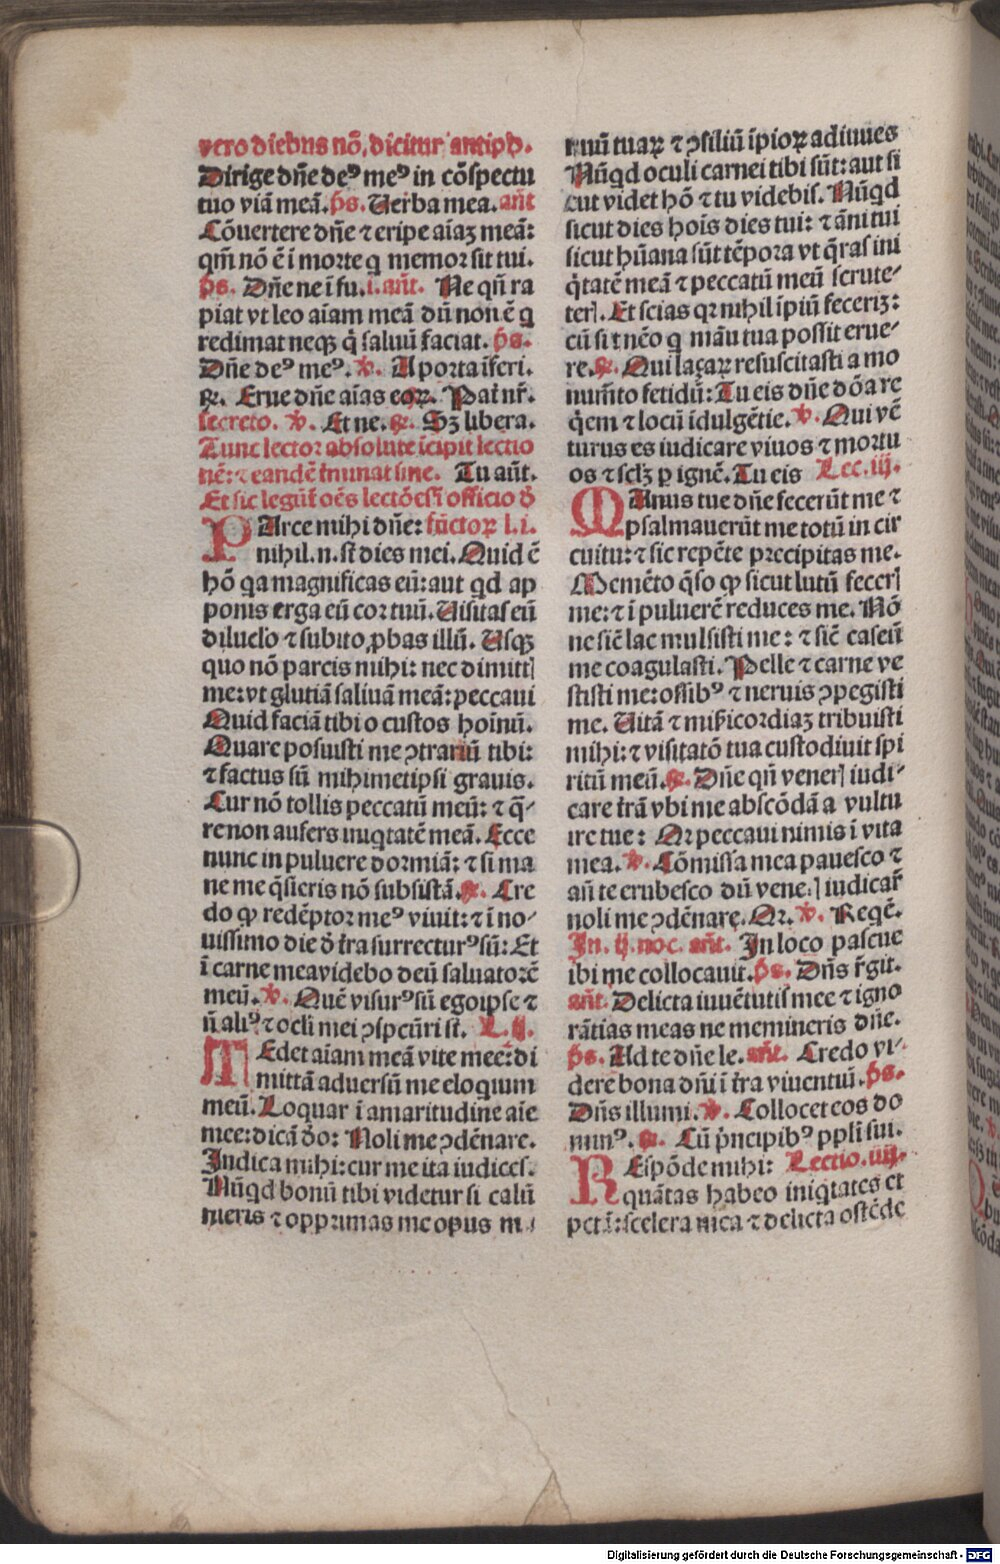 vero diebus nō, dicitur antiph.
Dirige dn̄e deꝰ meꝰ in cōspectu
tuo viā meā. p̄s. Uerba mea. an̄t
Cōuertere dn̄e ⁊ eripe aīaꝫ meā:
qm̄ nō ē ī morte q memor sit tui.
p̄s. Dn̄e ne ī fu. i. an̄t. Ne qn̄ ra
piat vt leo aīam meā dū non ē q
redimat neqꝫ q̇ saluū faciat. p̄s.
Dn̄e deꝰ meꝰ. ℣. A porta īferi.
℟. Erue dn̄e aīas eoꝝ. Pat̄ nr̄.
secreto. ℣. Et ne. ℟. Sꝫ libera.
Tunc lector absolute īcipit lectio
nē: ⁊ eandē t̄minat sine. Tu aūt.
Et sic legūt̄ oēs lectōes ī officio d̄
PArce mihi dn̄e: fūctoꝝ l. i.
nihil. n. st̄ dies mei. Quid ē
hō qa magnificas eū: aut qd ap
ponis erga eū cor tuū. Uisitas eū
diluclo ⁊ subito ꝓbas illū. Usqꝫ
quo nō parcis mihi: nec dimittꝭ
me: vt glutiā saliuā meā: peccaui
Quid faciā tibi o custos hoīnū.
Quare posuisti me ↄtrariū tibi:
⁊ factus sū mihimetipsi grauis.
Cur nō tollis peccatū meū: ⁊ q̄-
re non aufers iniqtatē meā. Ecce
nunc in puluere dormiā: ⁊ si ma
ne me q̄sieris nō subsistā. ℟. Cre
do ꝙ redēptor meꝰ viuit: ⁊ ī no-
uissimo die d̄ t̄ra surrecturꝰ sū: Et
ī carne mea videbo deū saluatorē
meū. ℣. Quē visurꝰ sū ego ipse ⁊
n̄ aliꝰ ⁊ ocli mei ↄspcūri st̄. L. ij.
TEdet aīam meā vite mee: di
mittā aduersū me eloquium
meū. Loquar ī amaritudine aīe
mee: dicā do: Noli me ↄdēnare.
Indica mihi: cur me ita iudices.
Nūqd bonū tibi videtur si calū
nieris ⁊ opprimas me opus m
nuū tuaꝝ ⁊ ↄsiliū īpioꝝ adiuues
Nūqd oculi carnei tibi sūt: aut si
cut videt hō ⁊ tu videbis. Nūqd
sicut dies hoīs dies tui: ⁊ āni tui
sicut hūana sūt tēpora vt q̄ras ini
q̇tatē meā ⁊ peccatū meū scrute-
terꝭ. Et scias qꝛ nihil īpiū fecerīꝫ:
cū sit nēo q māu tua possit erue-
re. ℟. Qui laꝫaꝝ resuscitasti a mo
numēto fetidū: Tu eis dn̄e dōa re
q̇em ⁊ locū īdulgētie. ℣. Qui vē
turus es iudicare viuos ⁊ mortu
os ⁊ sclꝫ p ignē. Tu eis Lec. iij.
MAnus tue dn̄e fecerūt me ⁊
psalmauerūt me totū in cir
cuitu: ⁊ sic repēte precipitas me.
Memēto q̄so ꝙ sicut lutū fecerꝭ
me: ⁊ ī puluerē reduces me. Nō
ne sic̄ lac mulsisti me: ⁊ sic̄ caseū
me coagulasti. Pelle ⁊ carne ve
stisti me: ossibꝰ ⁊ neruis ↄpegisti
me. Uitā ⁊ mīsericordiaꝫ tribuisti
mihi: ⁊ visitatō tua custodiuit spi
ritū meū. ℟. Dn̄e qn̄ venerꝭ iudi-
care t̄rā vbi me abscōdā a vultu
ire tue: Qꝛ peccaui nimis ī vita
mea. ℣. Cōmissa mea pauesco ⁊
an̄ te erubesco dū venerꝭ iudicar̄
noli me ↄdēnare. Qꝛ. ℣. Reqē.
In. ij. noc. an̄t. In loco pascue
ibi me collocauit. p̄s. Dn̄s r̄git.
an̄t. Delicta iuuētutis mee ⁊ igno
rātias meas ne memineris dn̄e.
p̄s. Ad te dn̄e le. an̄t. Credo vi-
dere bona dn̄i ī t̄ra viuentiū. p̄s.
Dn̄s illumi. ℣. Collocet eos do
minꝰ. ℟. Cū p̄ncipibꝰ ppli sui.
REspōde mihi: Lectio. iiij.
quātas habeo iniqtates et
pctā: scelera mea ⁊ delicta ostēde
Digitalisierung gefördert durch die Deutsche Forschungsgemeinschaft - DFG